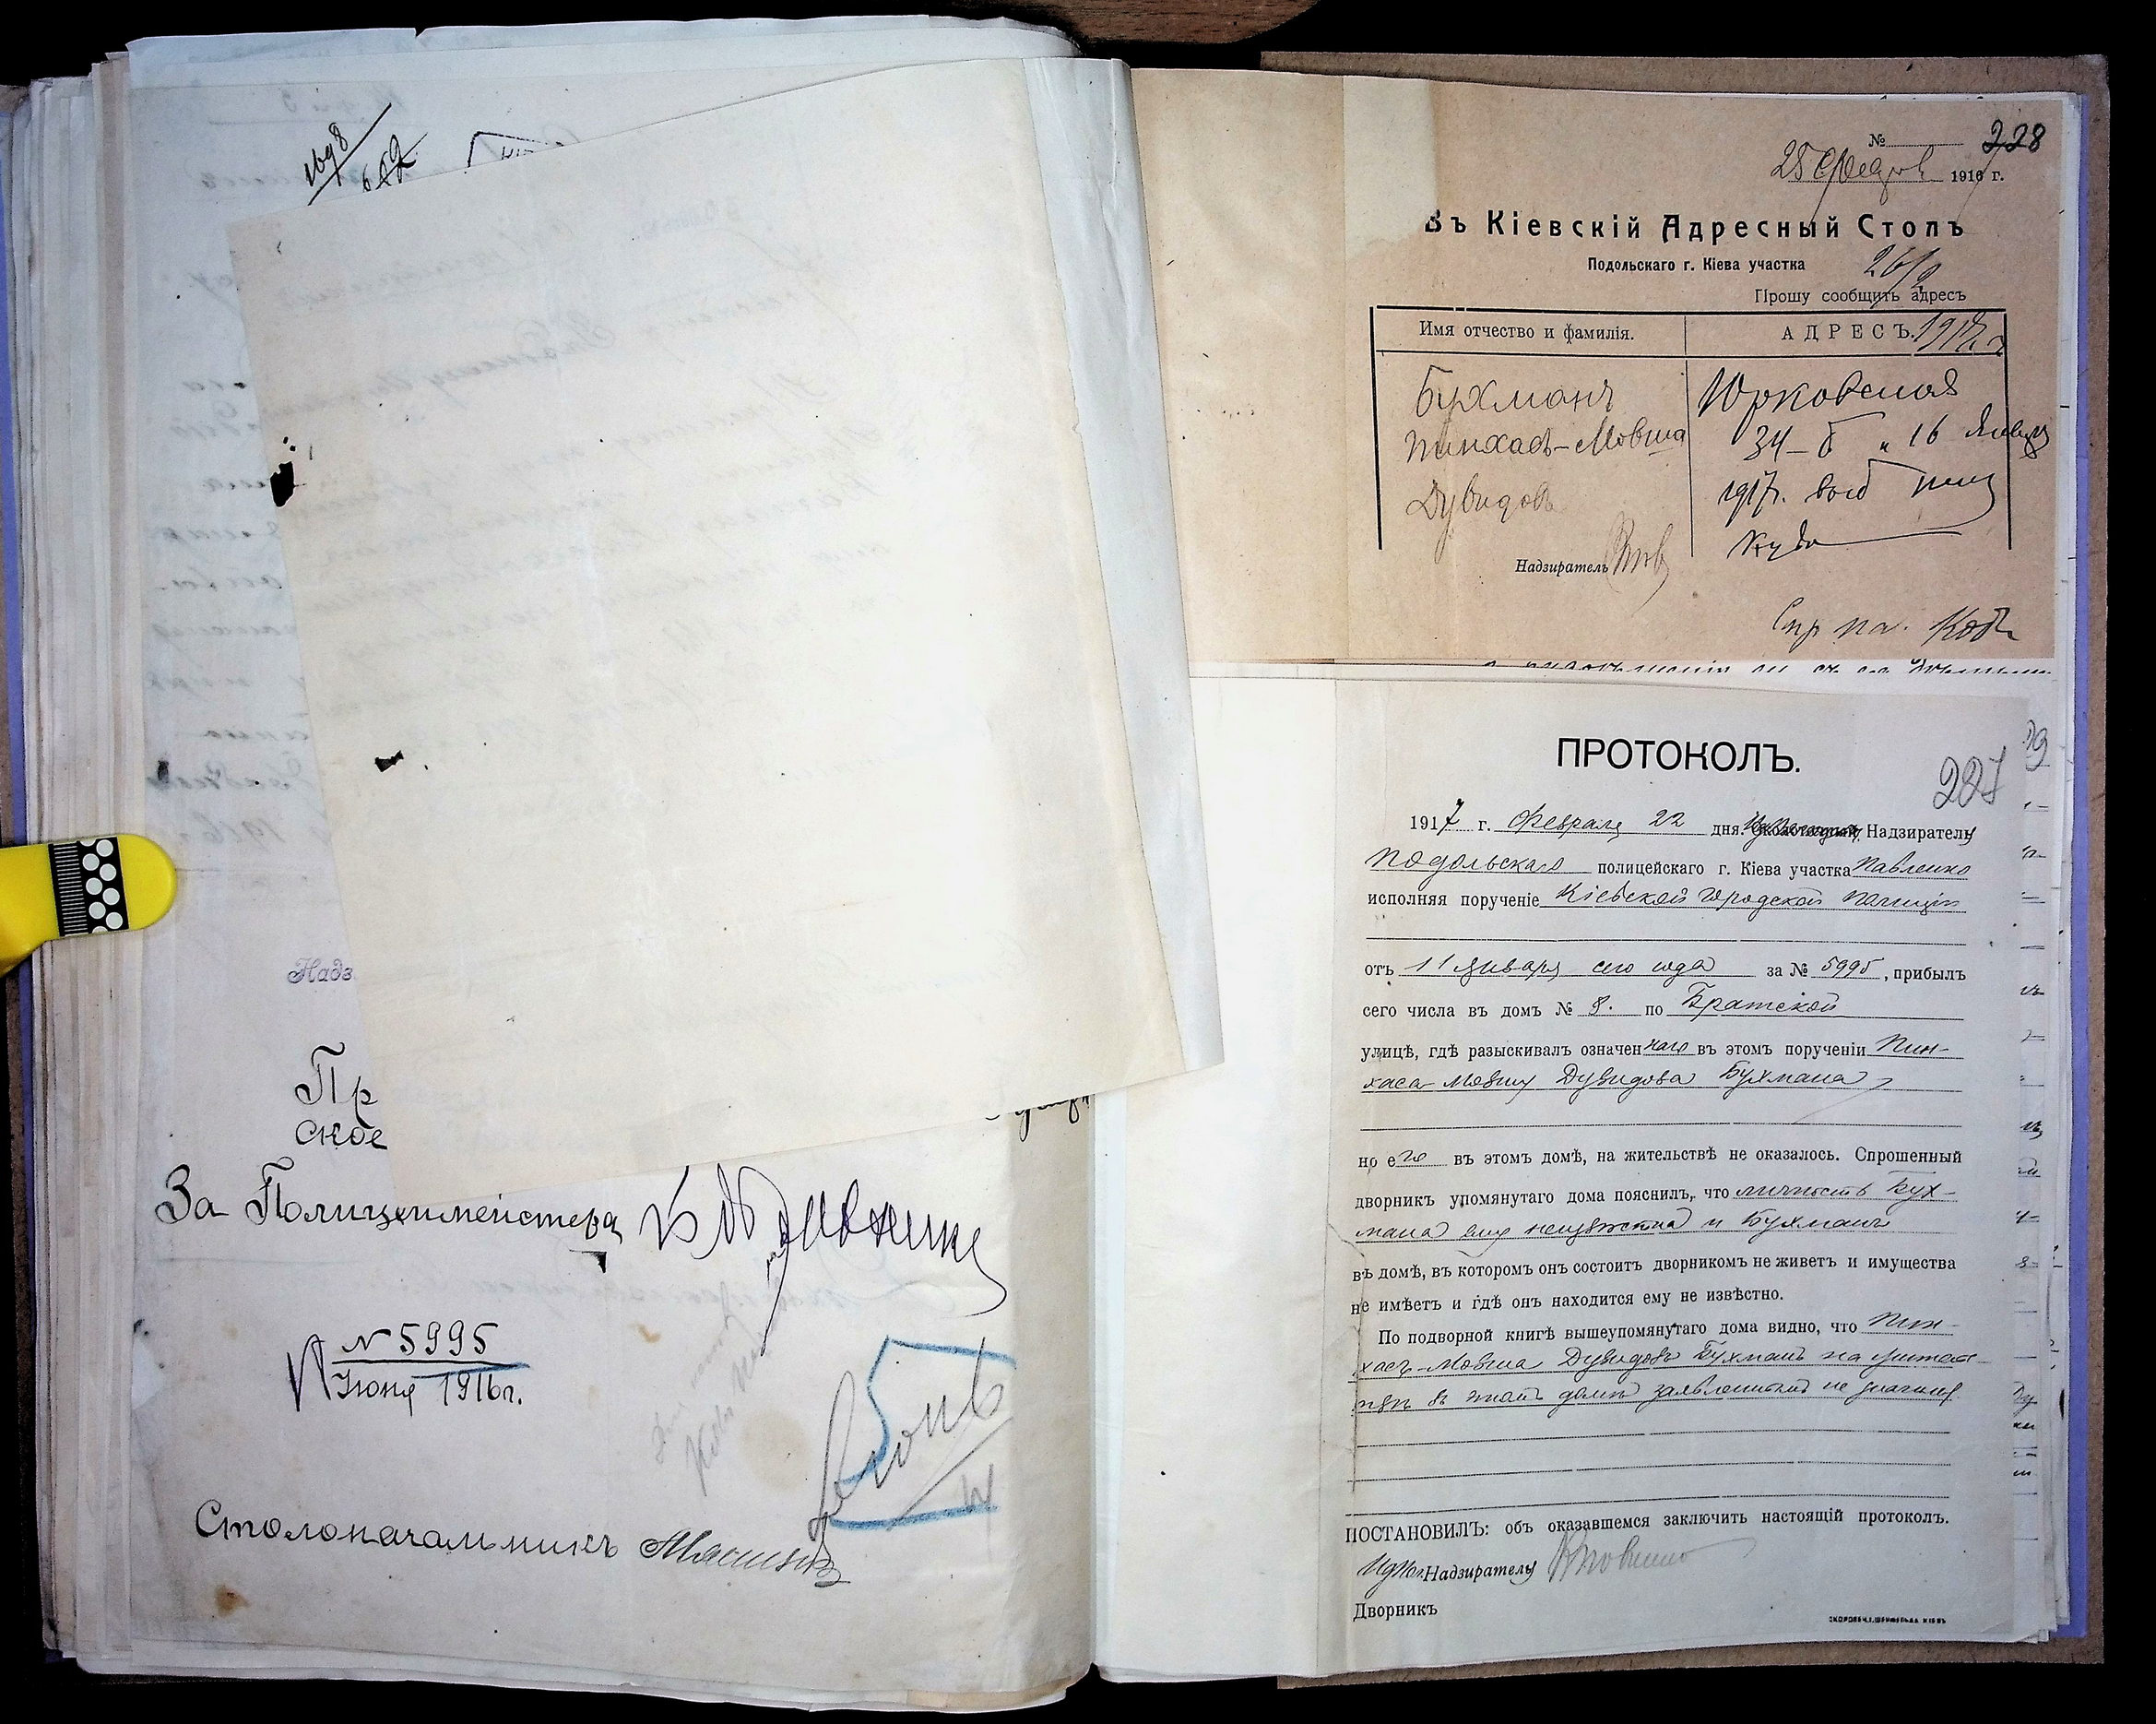 1698
652
Надз
Пр
ское
За Полицеймейстера
№ 5995
Июня 1916 г.
Столоначальникъ
№ 228
25 1917 г.
Въ Кіевскій Адресный Столъ
Подольскаго г. Кіева участка
26/2
Прошу сообщить адресъ
Имя отчество и фамилія. АДРЕСЪ. 1917 г.
Бухманъ Юрковская
Пинхасъ-Мовша 34-б 16 Января
Дувидовъ 1917. выб
куда
Надзиратель
Спр
ПРОТОКОЛЪ.
227
1917 г. Февраля 22 дня. Околоточный Надзиратель
Подольскаго полицейскаго г. Кіева участка Павленко
исполняя порученіе Кіевской Городской Полиціи
отъ 11 Января сего года за № 5995, прибылъ
сего числа въ домъ № 8. по Братской
улицѣ, гдѣ разыскивалъ означеннаго въ этомъ порученіи Пин-
хаса Мовшу Дувидова Бухмана
но его въ этомъ домѣ, на жительствѣ не оказалось. Спрошенный
дворникъ упомянутаго дома пояснилъ, что личность Бух-
мана ему неизвѣстна и Бухманъ
въ домѣ, въ которомъ онъ состоитъ дворникомъ не живетъ и имущества
не имѣетъ и гдѣ онъ находится ему не извѣстно.
По подворной книгѣ вышеупомянутаго дома видно, что Пин-
хасъ-Мовша Дувидовъ Бухманъ на житель-
ствѣ въ этомъ домѣ заявленнымъ не значится
ПОСТАНОВИЛЪ: объ оказавшемся заключить настоящій протоколъ.
Надзиратель
Дворникъ